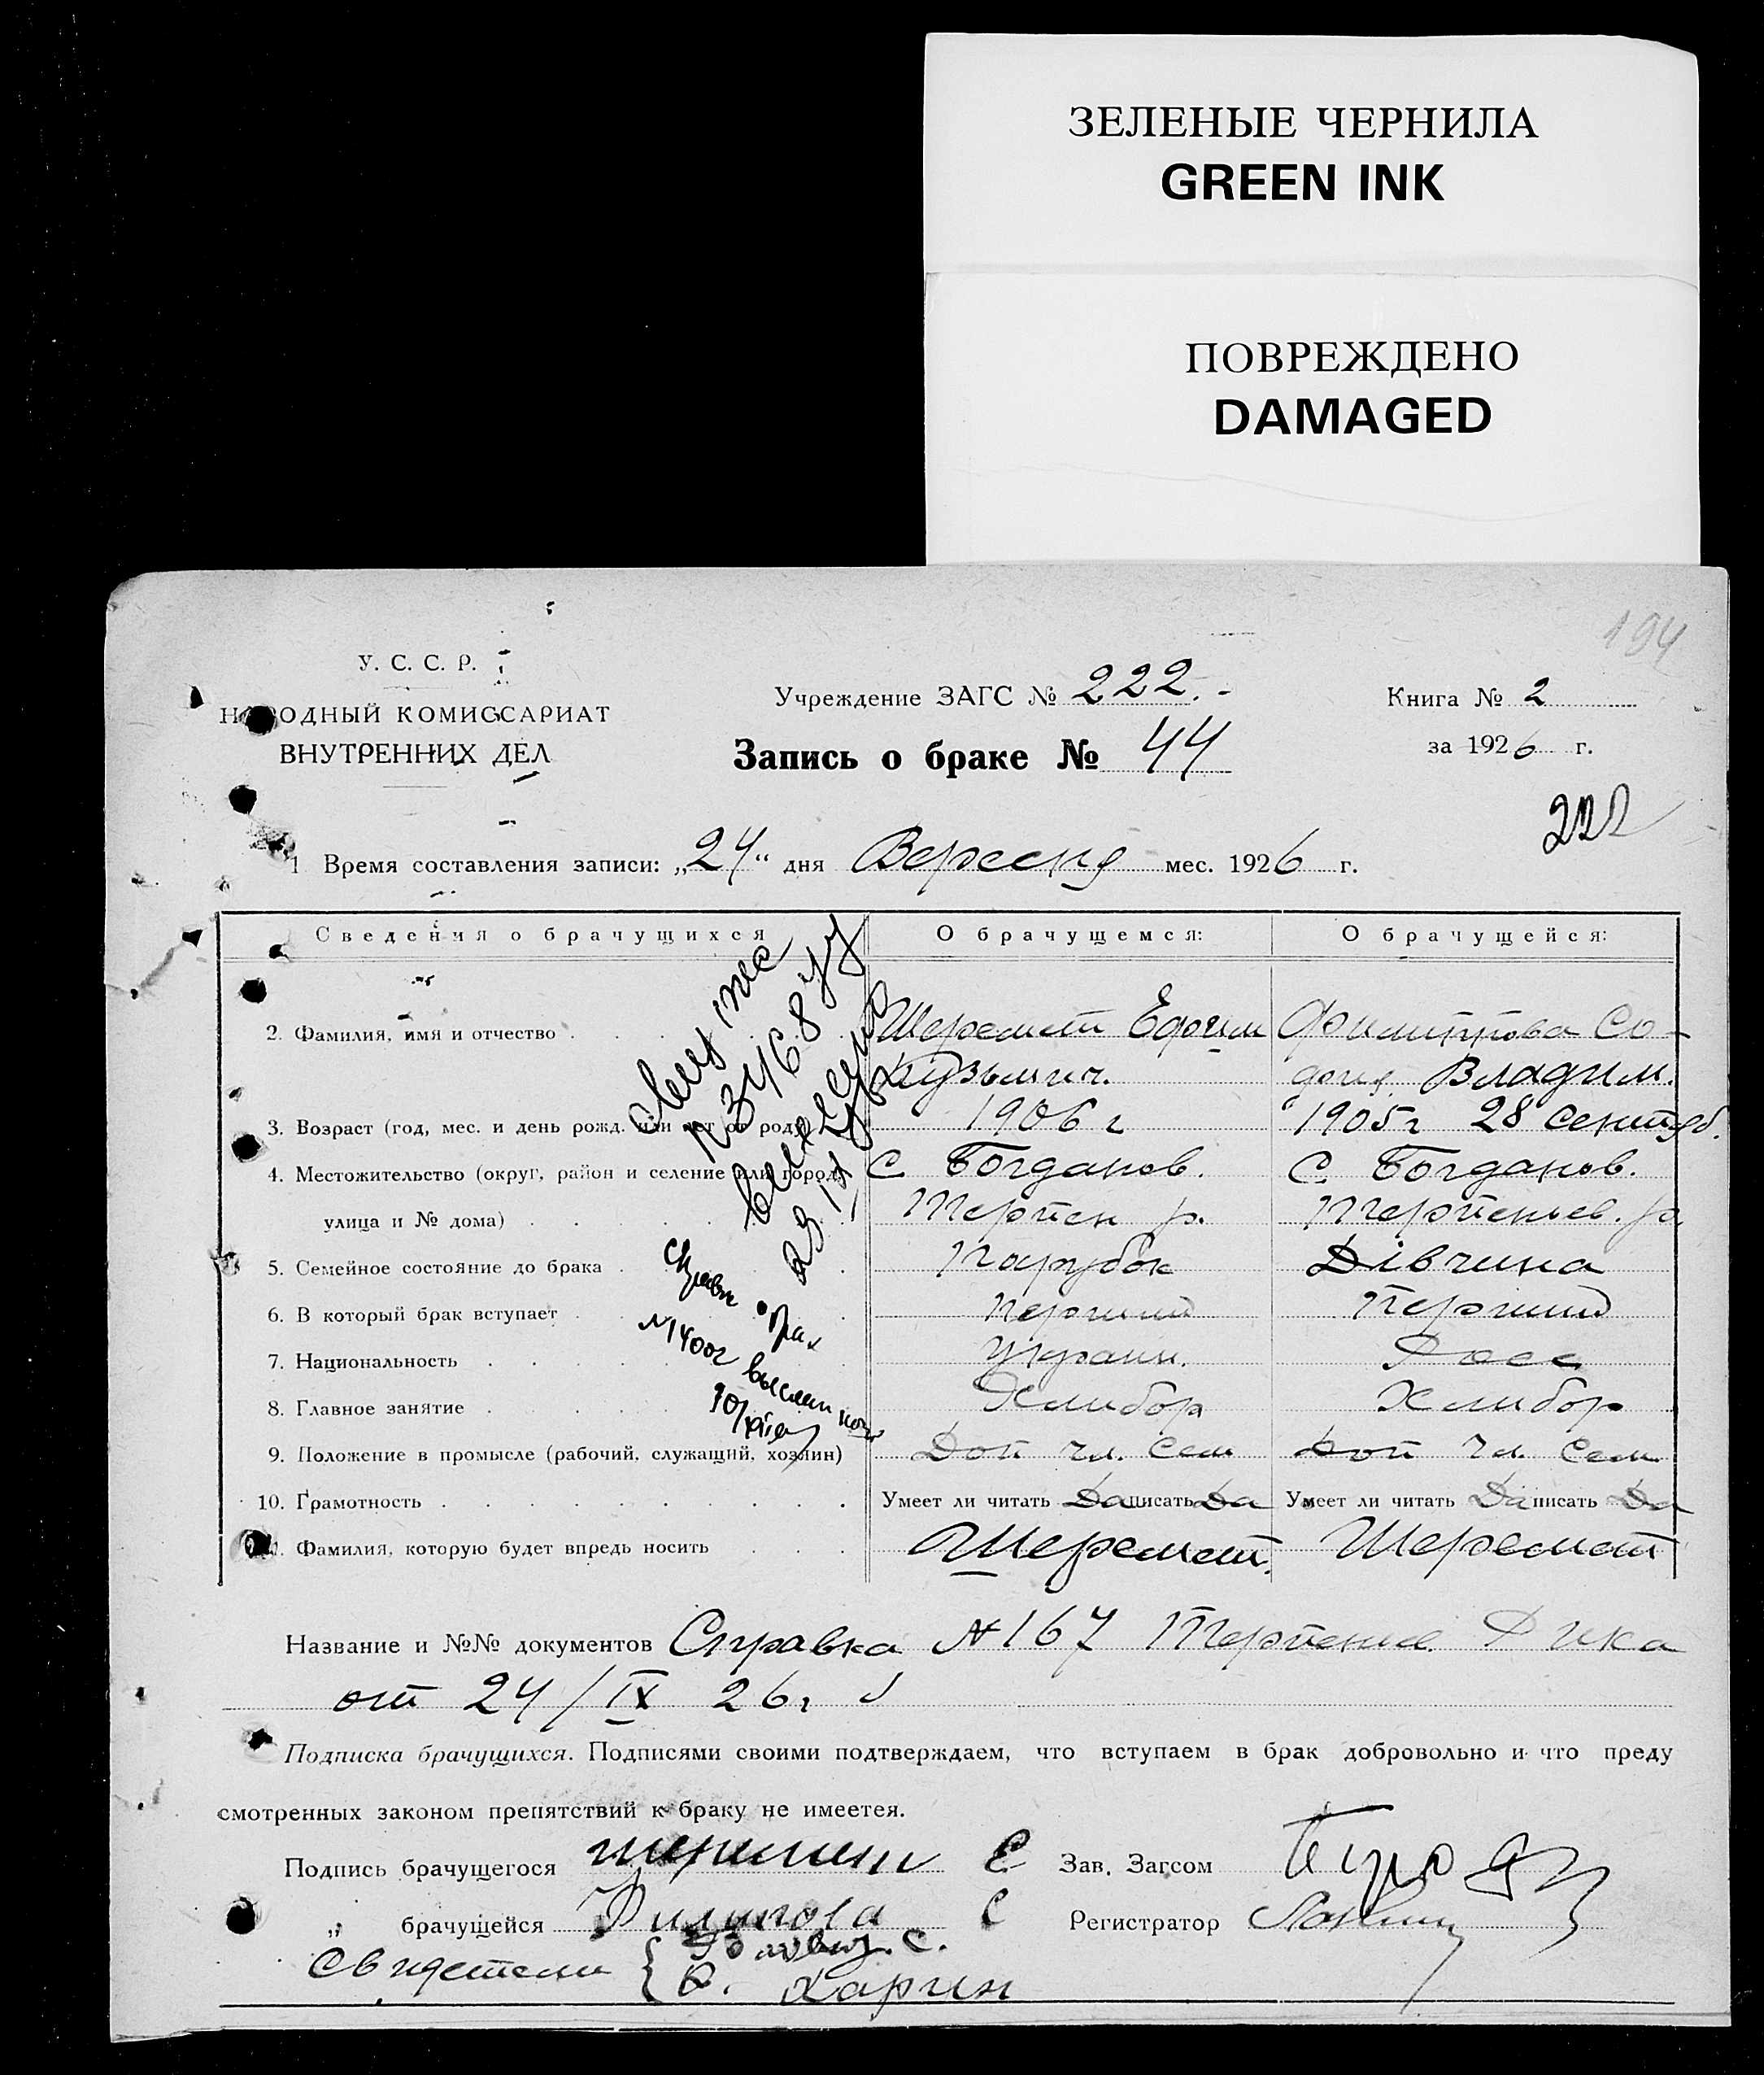 ЗЕЛЕНЫЕ ЧЕРНИЛА
GREEN INK
ПОВРЕЖДЕНО
DAMAGED
194
У. С. С. Р.
НАРОДНЫЙ КОМИССАРИАТ
ВНУТРЕННИХ ДЕЛ
Учреждение ЗАГС № 222.-
Книга № 2
Запись о браке № 44
за 1926 г.
222
1 Время составления записи: „24“ дня Вересня мес. 1926 г.
Сведения о брачущихся
О брачущемся:
О брачущейся:
2. Фамилия, имя и отчество
Шеремет Ефим
Кузьмич.
Со-
фия Владим.
3. Возраст (год, мес. и день рожд. или лет от роду)
1906 г
1905 г 28 сентяб.
4. Местожительство (округ, район и селение или город,
с. Богданов.
с. Богданов.
улица и № дома)
Терпен р.
Терпеньев. р.
5. Семейное состояние до брака
Парубок
Дівчина
6. В который брак вступает
Перший
Перший
7. Национальность
Украин.
Росс
8. Главное занятие
Хлибор
Хлибор
9. Положение в промысле (рабочий, служащий, хозяин)
Доп чл. Сем
Доп чл. Сем
10. Грамотность
Умеет ли читать Да писать Да
Умеет ли читать Да писать Да
11. Фамилия, которую будет впредь носить
Шеремет.
Шеремет
Название и №№ документов Справка №167
от 24/IX 26г
Подписка брачущихся. Подписями своими подтверждаем, что вступаем в брак добровольно и что преду
смотренных законом препятствий к браку не имеетея.
Подпись брачущегося шеремет Е
Зав. Загсом
„ брачущейся С
Регистратор
Свидетели
Харин